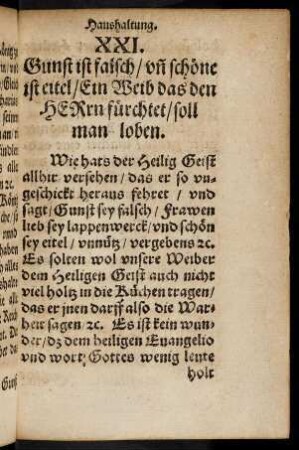 Haushaltung.
XXI.
Gunst ist falsch / vn̄ schöne
ist eitel / Ein Weib das den
HERrn fürchtet / soll
man loben.
Wie hats der Heilig Geist
allhir versehen / das er so vn-
geschickt heraus fehret / vnd
sagt / Gunst sey falsch / Frawen
lieb sey lappenwerck / vnd schön
sey eitel / vnnütz / vergebens ꝛc.
Es solten wol vnsere Weiber
dem Heiligen Geist auch nicht
viel holtz in die Küchen tragen /
das er jnen darff also die War-
heit sagen ꝛc. Es ist kein wun-
der / dz dem heiligen Euangelio
vnd wort Gottes wenig leute
holt